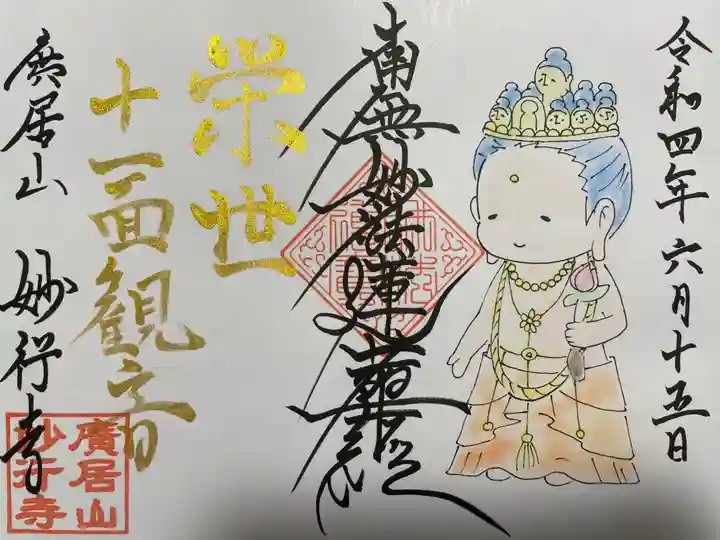 令和四年六月十五日
南無妙法蓮華経
崇世
十一面観音
廣居山 妙行寺
廣居山
妙行寺